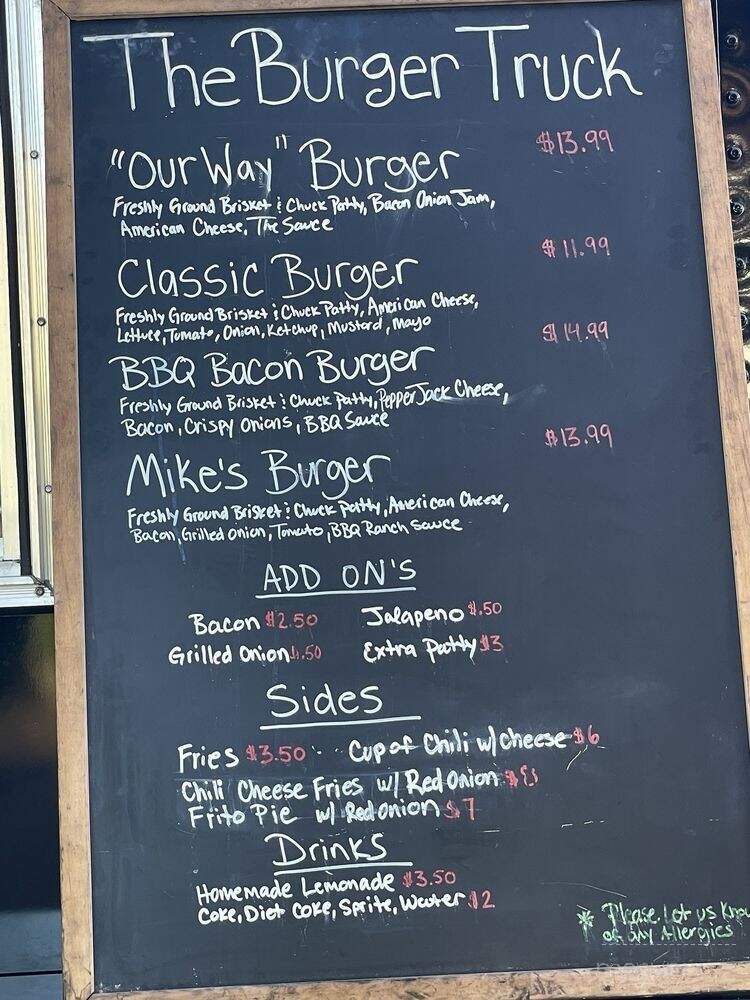 The Burger Truck
"Our Way" Burger $13.99
Freshly Ground Brisket & Chuck Patty, Bacon Onion Jam,
American Cheese, The Sauce
Classic Burger $11.99
Freshly Ground Brisket & Chuck Patty, American Cheese,
Lettuce, Tomato, Onion, Ketchup, Mustard, Mayo
BBQ Bacon Burger $14.99
Freshly Ground Brisket & Chuck Patty, Pepper Jack Cheese,
Bacon, Crispy Onions, BBQ Sauce
Mike's Burger $13.99
Freshly Ground Brisket & Chuck Patty, American Cheese,
Bacon, Grilled Onion, Tomato, BBQ Ranch Sauce
ADD ON'S
Bacon $2.50 Jalapeno $.50
Grilled Onion $.50 Extra Patty $3
Sides
Fries $3.50 Cup of Chili w/ Cheese $6
Chili Cheese Fries w/ Red Onion $8
Frito Pie w/ Red Onion $7
Drinks
Homemade Lemonade $3.50
Coke, Diet Coke, Sprite, Water $2
* Please Let us Know
of any Allergies